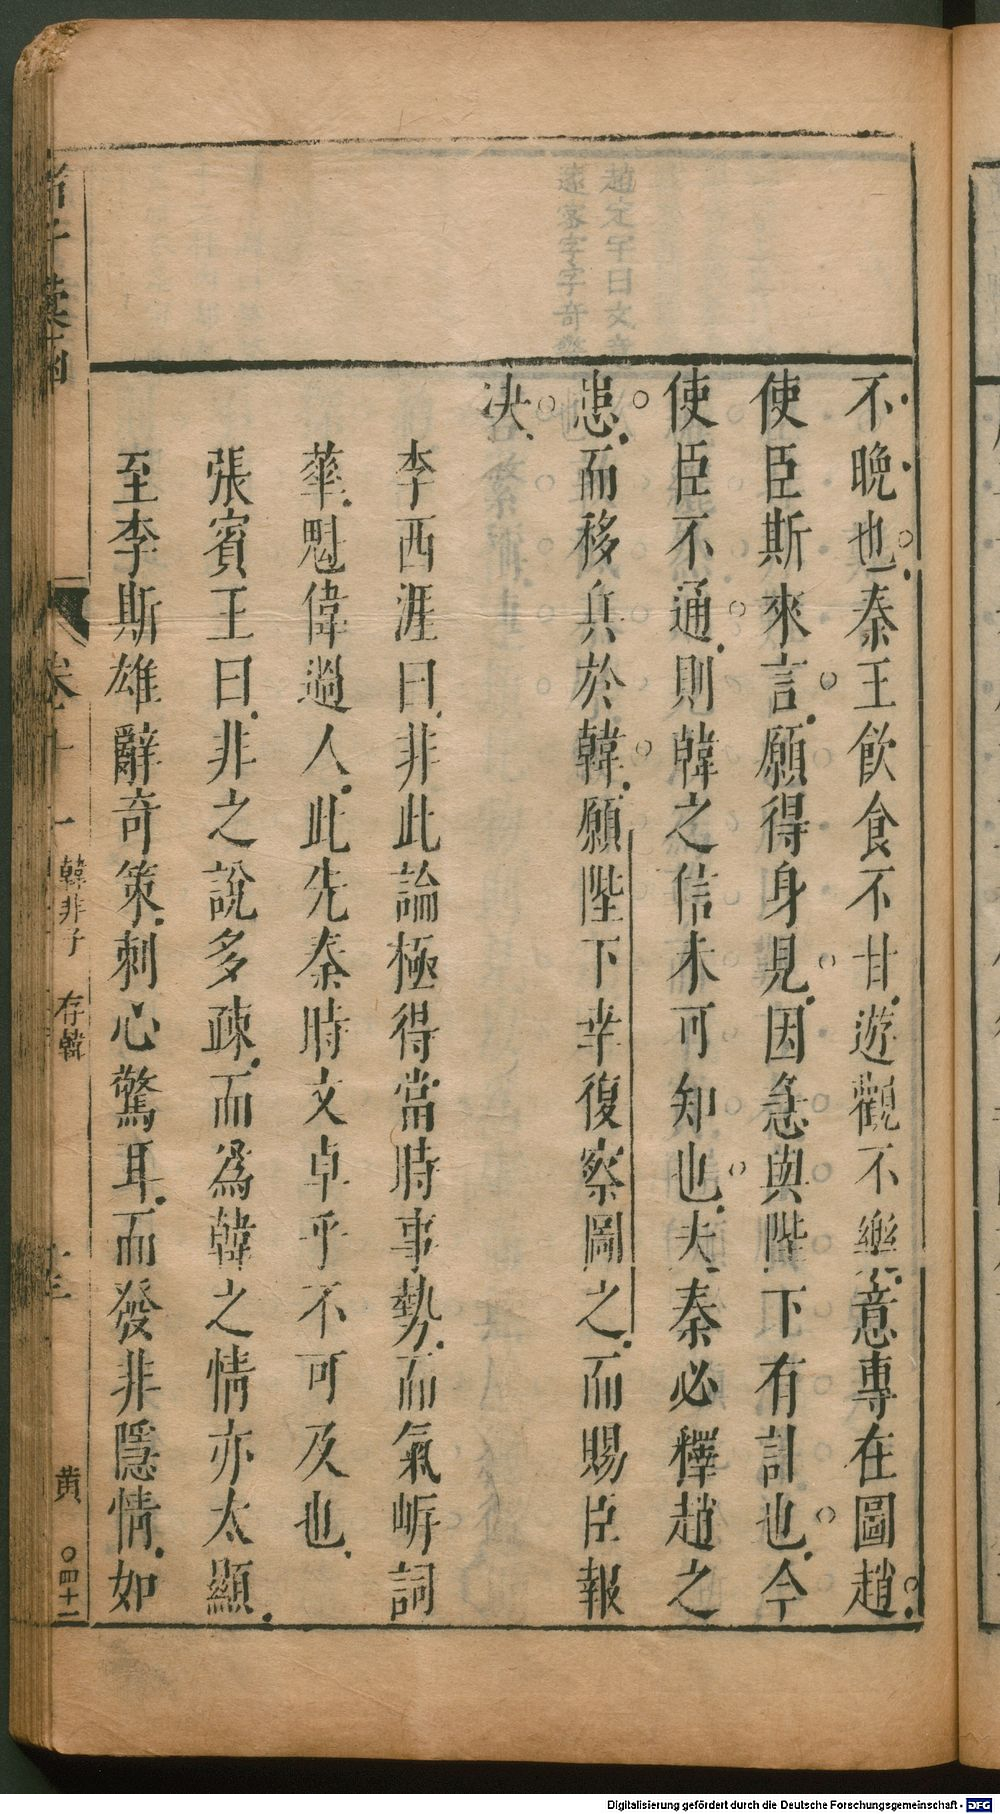 不晚也秦王飲食不甘遊觀不樂意專在圖趙
使臣斯來言願得身見因急與陛下有計也今
使臣不通則韓之信未可知也夫秦必釋趙之
患而移兵於韓願陛下幸復察圖之而賜臣報
決
李西涯曰非此論極得當時事勢而氣岸詞
華魁偉過人此先秦時文卓乎不可及也
張賓王曰非之說多疎而爲韓之情亦太顯
至李斯雄辭奇策刺心驚耳而發非隱情如
韓非子 存韓
黄 〇四十二
Digitalisierung gefördert durch die Deutsche Forschungsgemeinschaft - DFG